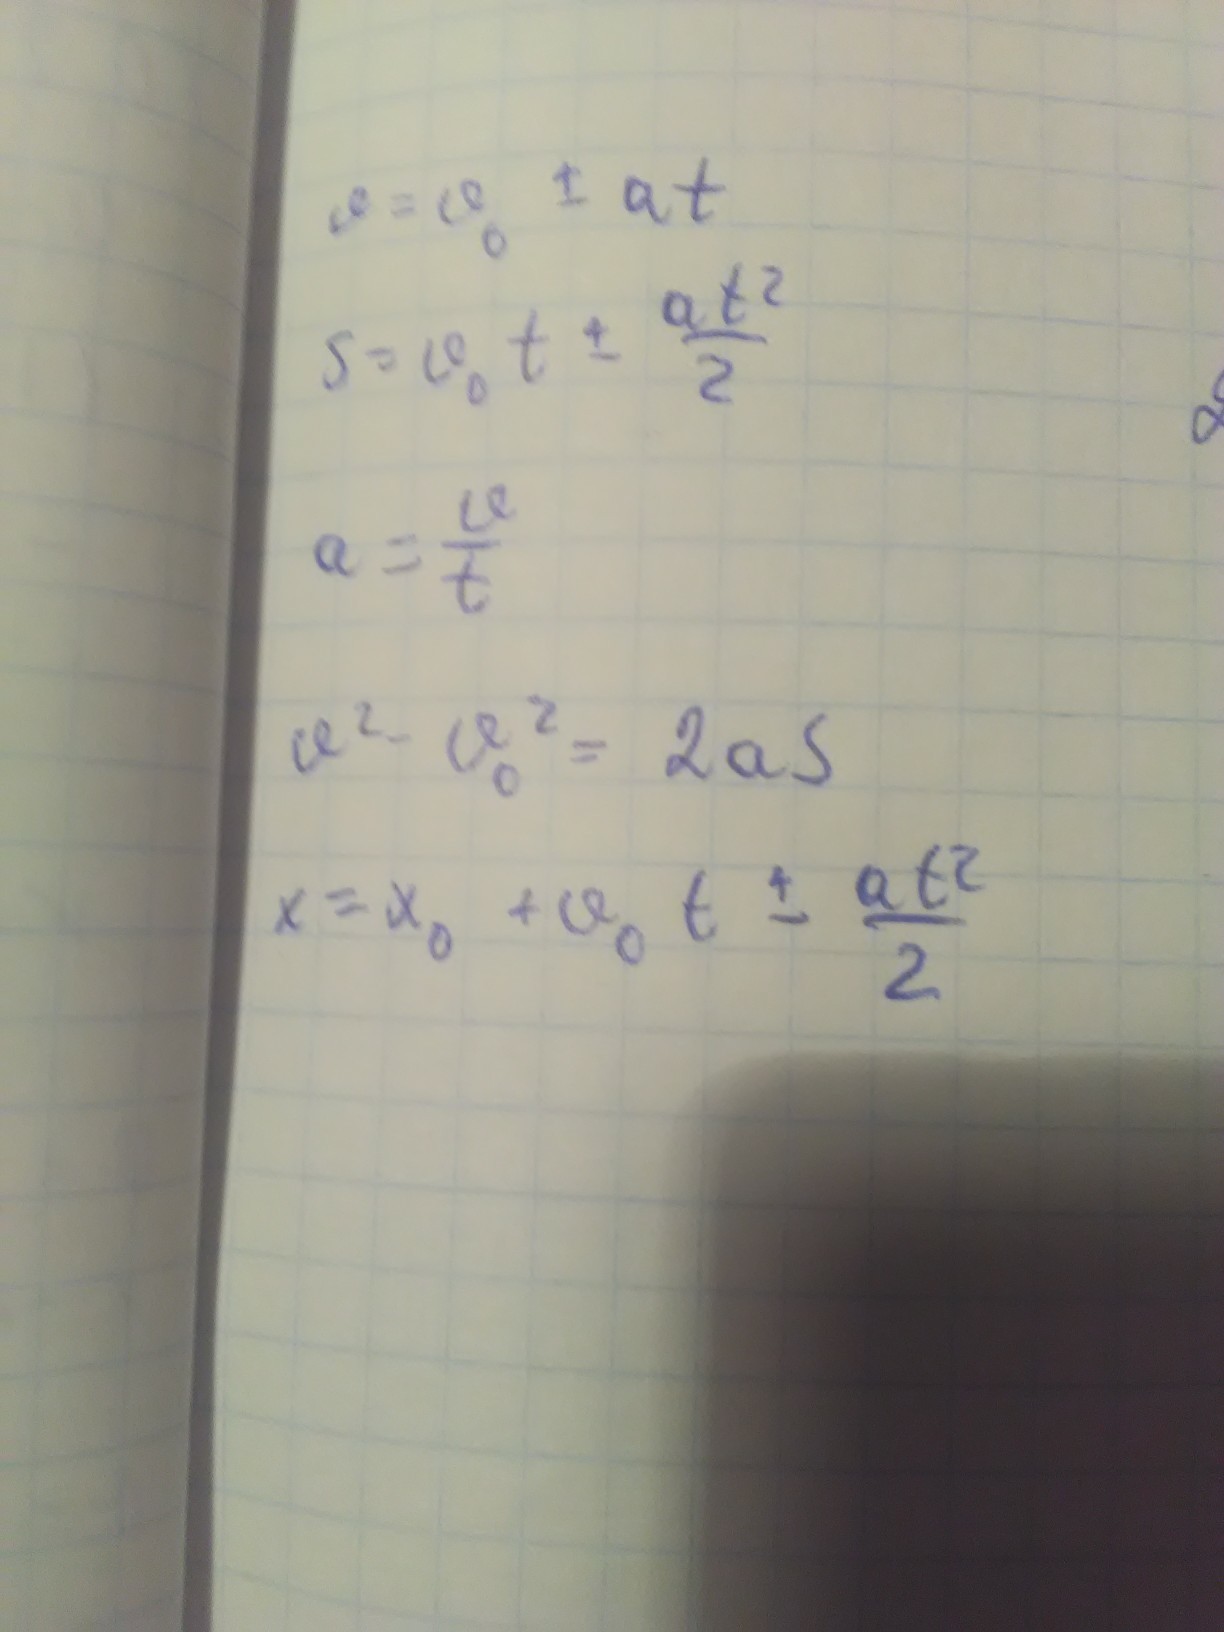 v = v₀ ± at
S = v₀ t ± at²/2
a = v/t
v² - v₀² = 2aS
x = x₀ + v₀ t ± at²/2